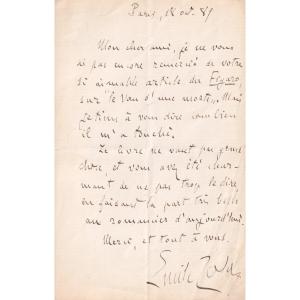 Paris, 18 oct. 89
Mon cher ami, je ne vous
ai pas encore remercié de votre
si aimable article du Figaro,
sur "le Vœu d'une morte". Mais
je tiens à vous dire combien
il m'a touché.
Le livre ne vaut pas grand'
chose, et vous avez été char-
mant de ne pas trop le dire,
en faisant la part très belle
au romancier d'aujourd'hui.
Merci, et tout à vous.
Emile Zola